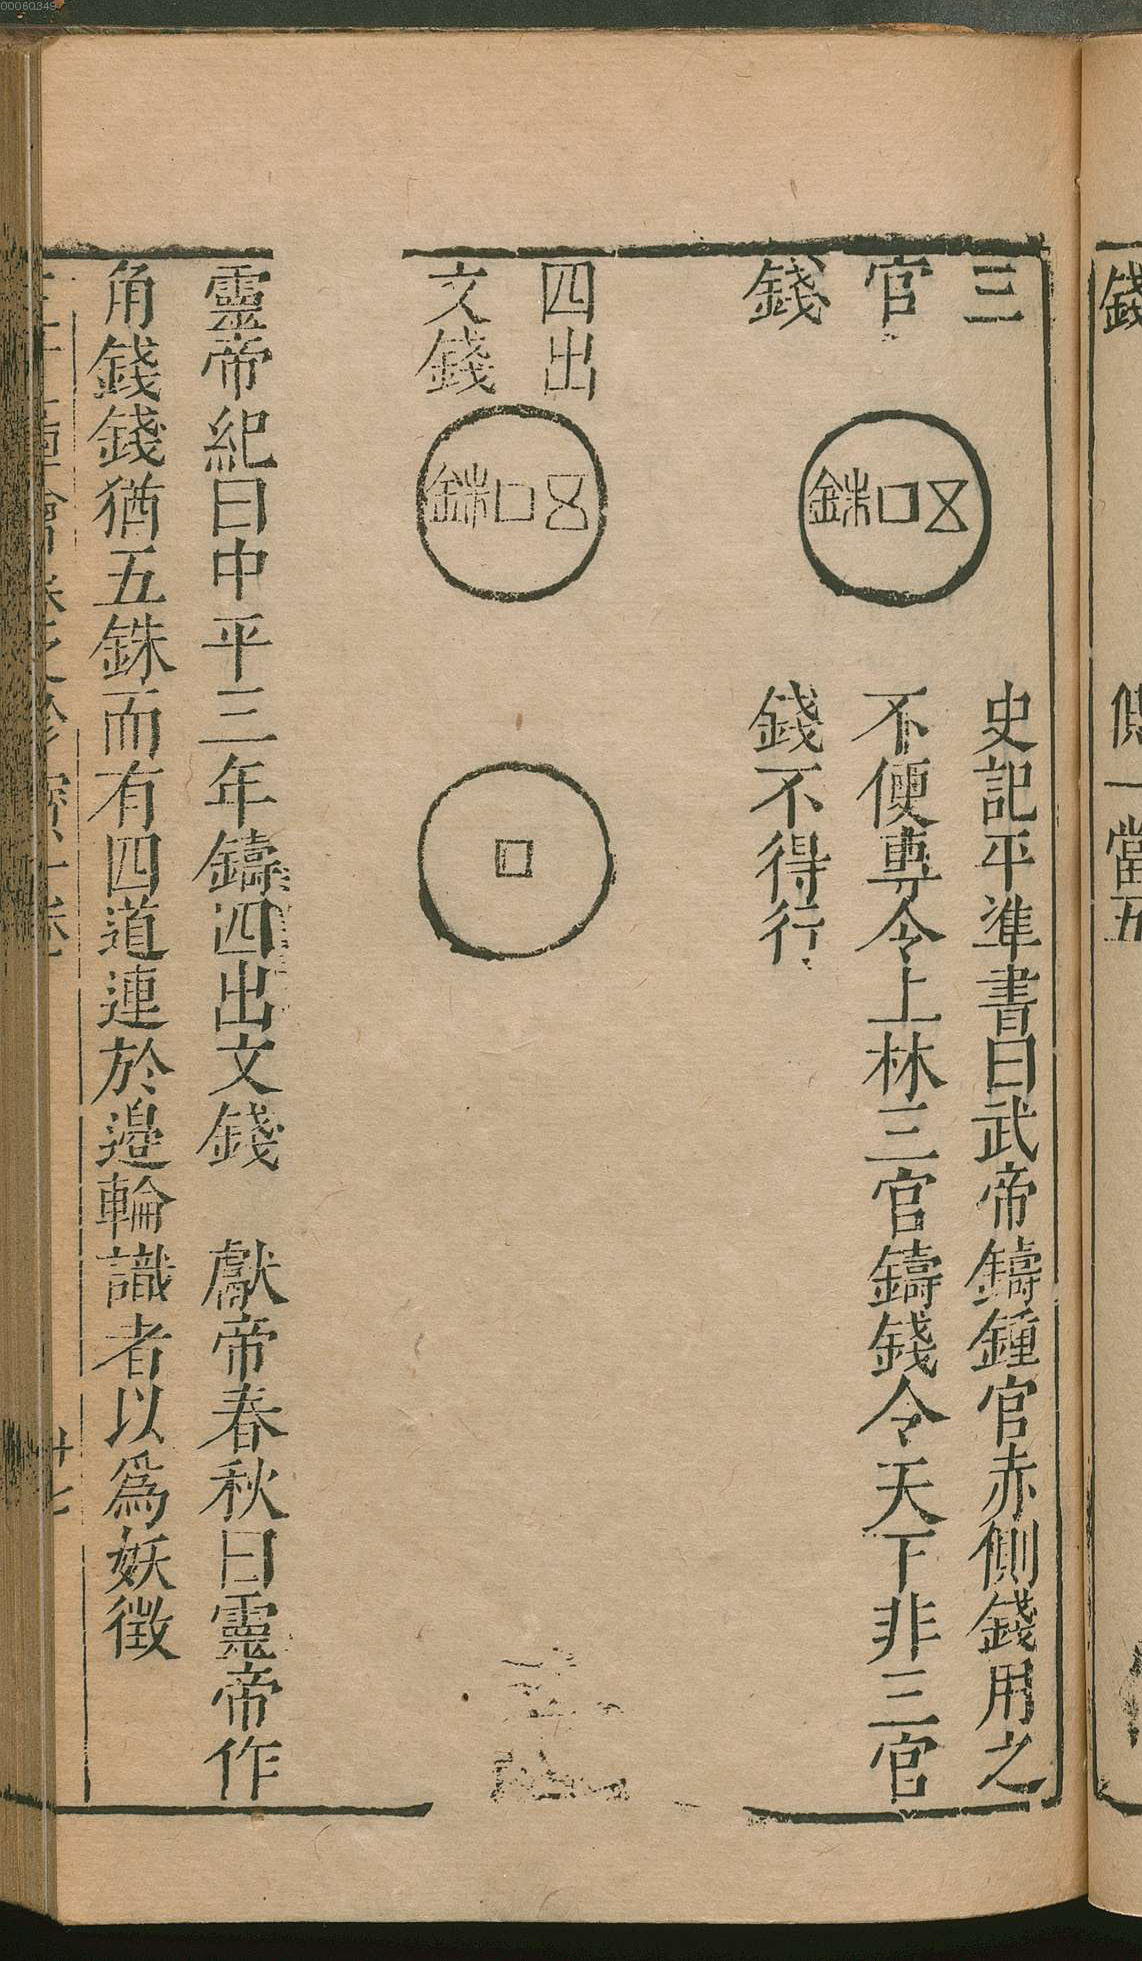 三
官
錢
五銖
史記平準書曰武帝鑄鍾官赤側錢用之
不便專令上林三官鑄錢令天下非三官
錢不得行
四出
文錢
五銖
靈帝紀曰中平三年鑄四出文錢　獻帝春秋曰靈帝作
角錢錢猶五銖而有四道連於邉輪識者以為妖徵
廿七
錢
一當五
00060349